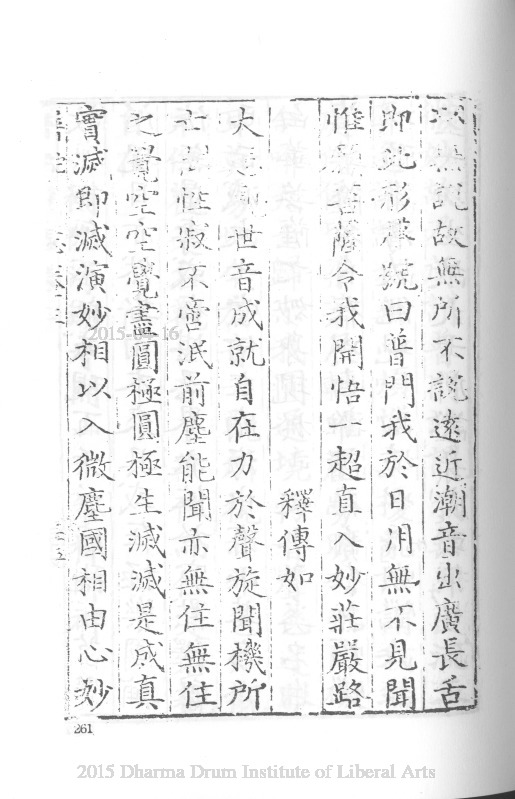 不然說故無所不說遠近潮音出廣長舌
即此形聲號曰普門我於日用無不見聞
惟願菩薩令我開悟一超直入妙莊嚴路
釋傳如
大 觀世音成就自在力於聲旋聞機所
性寂不啻泯前塵能聞亦無住無住
之覺空空覺盡圓極圓極生滅滅是成真
實滅即滅演妙相以入微塵國相由心妙
2015- -16
261
2015 Dharma Drum Institute of Liberal Arts